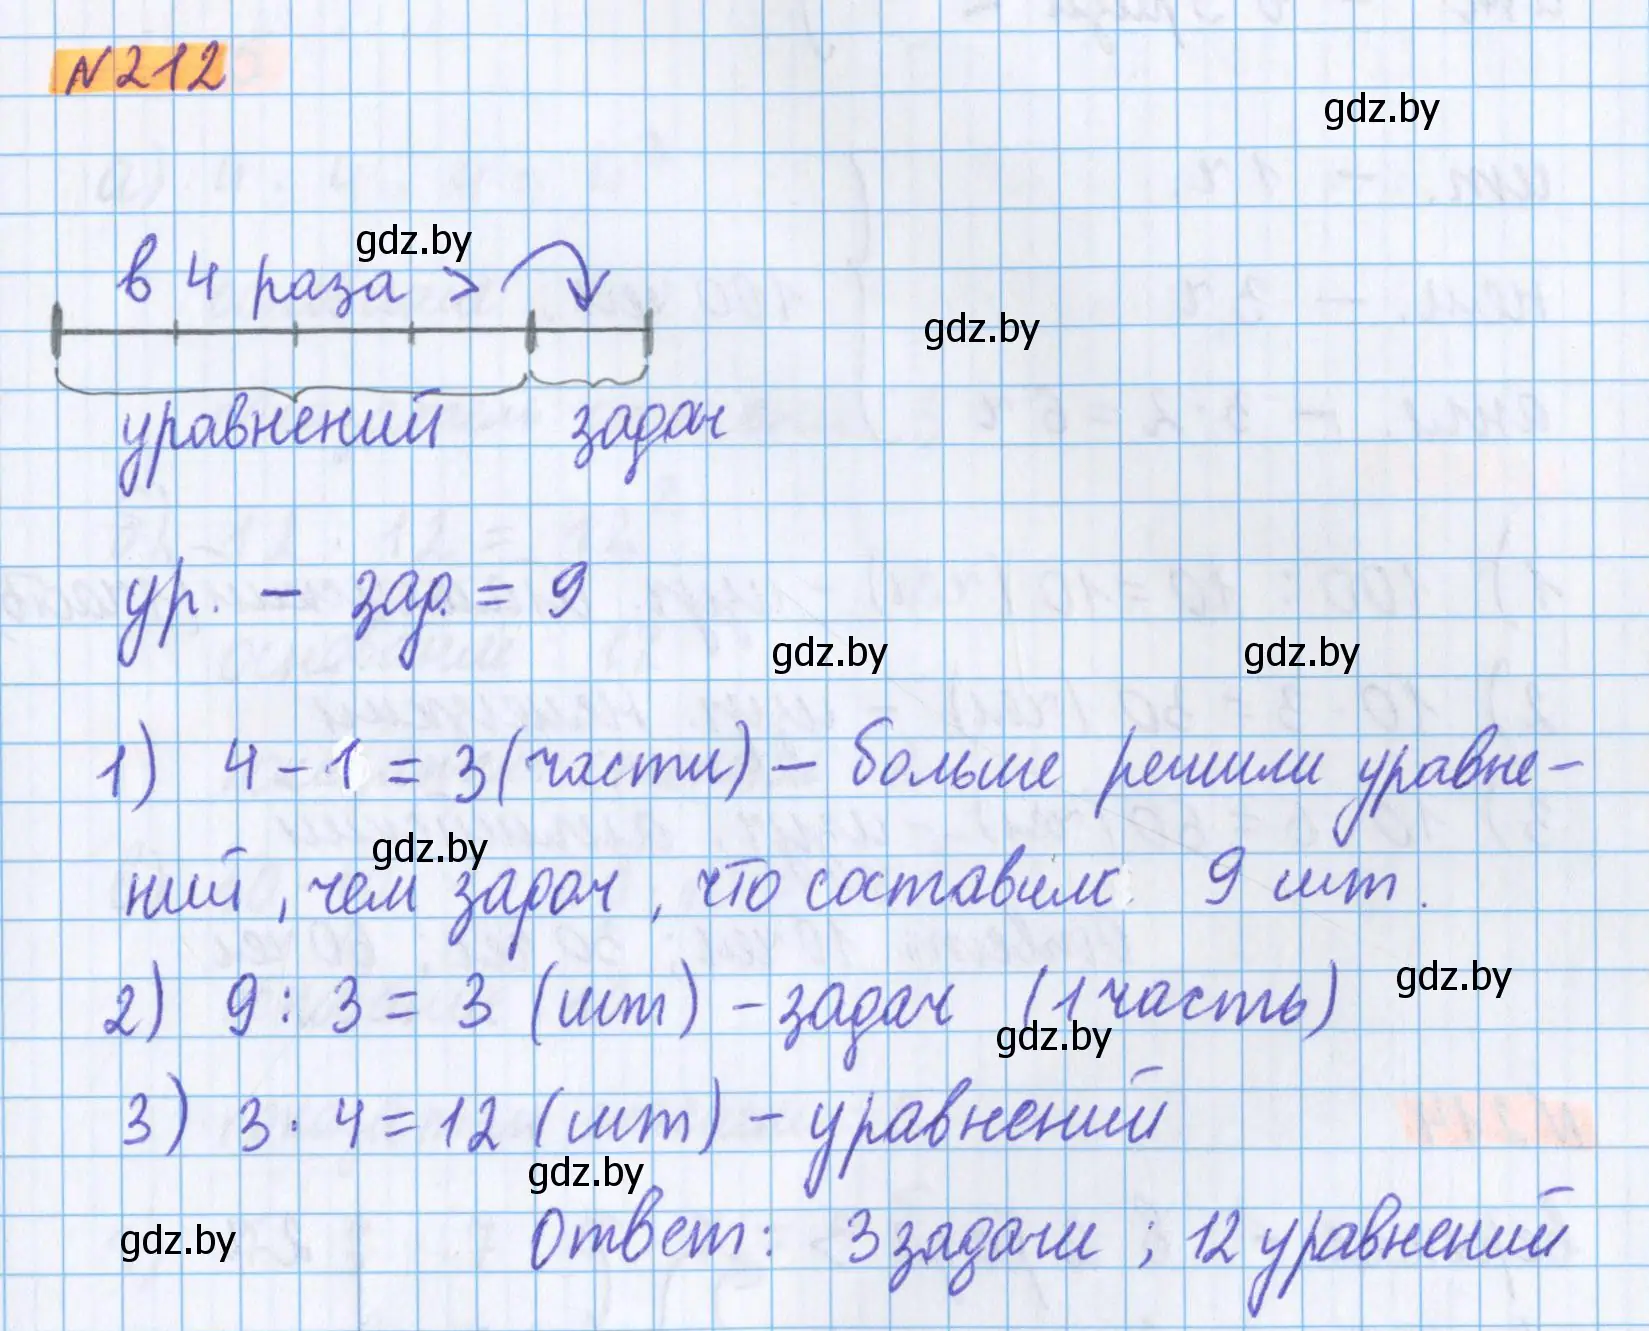 N 212
gdz.by
gdz.by
в 4 раза >
gdz.by
уравнений задач
ур. – зад. = 9
gdz.by gdz.by
1) 4 – 1 = 3 (части) – больше решили уравне-
gdz.by
ний, чем задач, что составило 9 шт.
gdz.by
2) 9 : 3 = 3 (шт) – задач (1 часть)
gdz.by
3) 3 · 4 = 12 (шт) – уравнений
gdz.by
gdz.by
Ответ: 3 задачи ; 12 уравнений